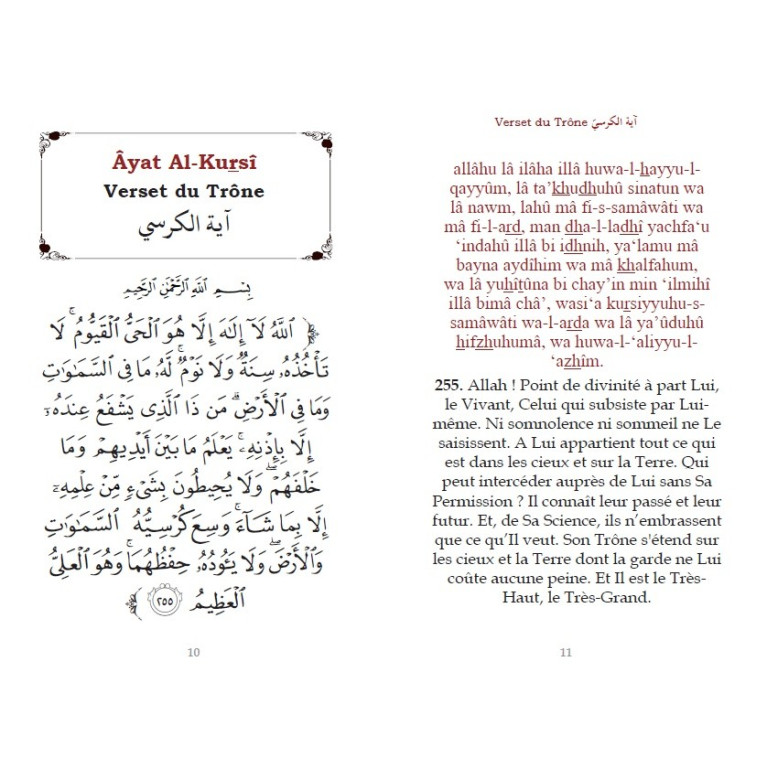 Âyat Al-Kursî
Verset du Trône
آية الكرسي
بِسْمِ اللَّهِ الرَّحْمَٰنِ الرَّحِيمِ
﴿ ٱللَّهُ لَآ إِلَٰهَ إِلَّا هُوَ ٱلْحَىُّ ٱلْقَيُّومُ ۚ لَا
تَأْخُذُهُۥ سِنَةٌ وَلَا نَوْمٌ ۚ لَّهُۥ مَا فِى ٱلسَّمَٰوَٰتِ
وَمَا فِى ٱلْأَرْضِ ۗ مَن ذَا ٱلَّذِى يَشْفَعُ عِندَهُۥٓ
إِلَّا بِإِذْنِهِۦ ۚ يَعْلَمُ مَا بَيْنَ أَيْدِيهِمْ وَمَا
خَلْفَهُمْ ۖ وَلَا يُحِيطُونَ بِشَىْءٍ مِّنْ عِلْمِهِۦٓ
إِلَّا بِمَا شَآءَ ۚ وَسِعَ كُرْسِيُّهُ ٱلسَّمَٰوَٰتِ
وَٱلْأَرْضَ ۖ وَلَا يَـُٔودُهُۥ حِفْظُهُمَا ۚ وَهُوَ ٱلْعَلِىُّ
ٱلْعَظِيمُ ٢٥٥ ﴾
10
Verset du Trône آية الكرسيّ
allâhu lâ ilâha illâ huwa-l-hayyu-l-
qayyûm, lâ ta’khudhuhû sinatun wa
lâ nawm, lahû mâ fî-s-samâwâti wa
mâ fî-l-ard, man dha-l-ladhî yachfa‘u
‘indahû illâ bi idhnih, ya‘lamu mâ
bayna aydîhim wa mâ khalfahum,
wa lâ yuhîtûna bi chay’in min ‘ilmihî
illâ bimâ châ’, wasi‘a kursiyyuhu-s-
samâwâti wa-l-arda wa lâ ya’ûduhû
hifzhuhumâ, wa huwa-l-‘aliyyu-l-
‘azhîm.
255. Allah ! Point de divinité à part Lui,
le Vivant, Celui qui subsiste par Lui-
même. Ni somnolence ni sommeil ne Le
saisissent. A Lui appartient tout ce qui
est dans les cieux et sur la Terre. Qui
peut intercéder auprès de Lui sans Sa
Permission ? Il connaît leur passé et leur
futur. Et, de Sa Science, ils n’embrassent
que ce qu’Il veut. Son Trône s'étend sur
les cieux et la Terre dont la garde ne Lui
coûte aucune peine. Et Il est le Très-
Haut, le Très-Grand.
11